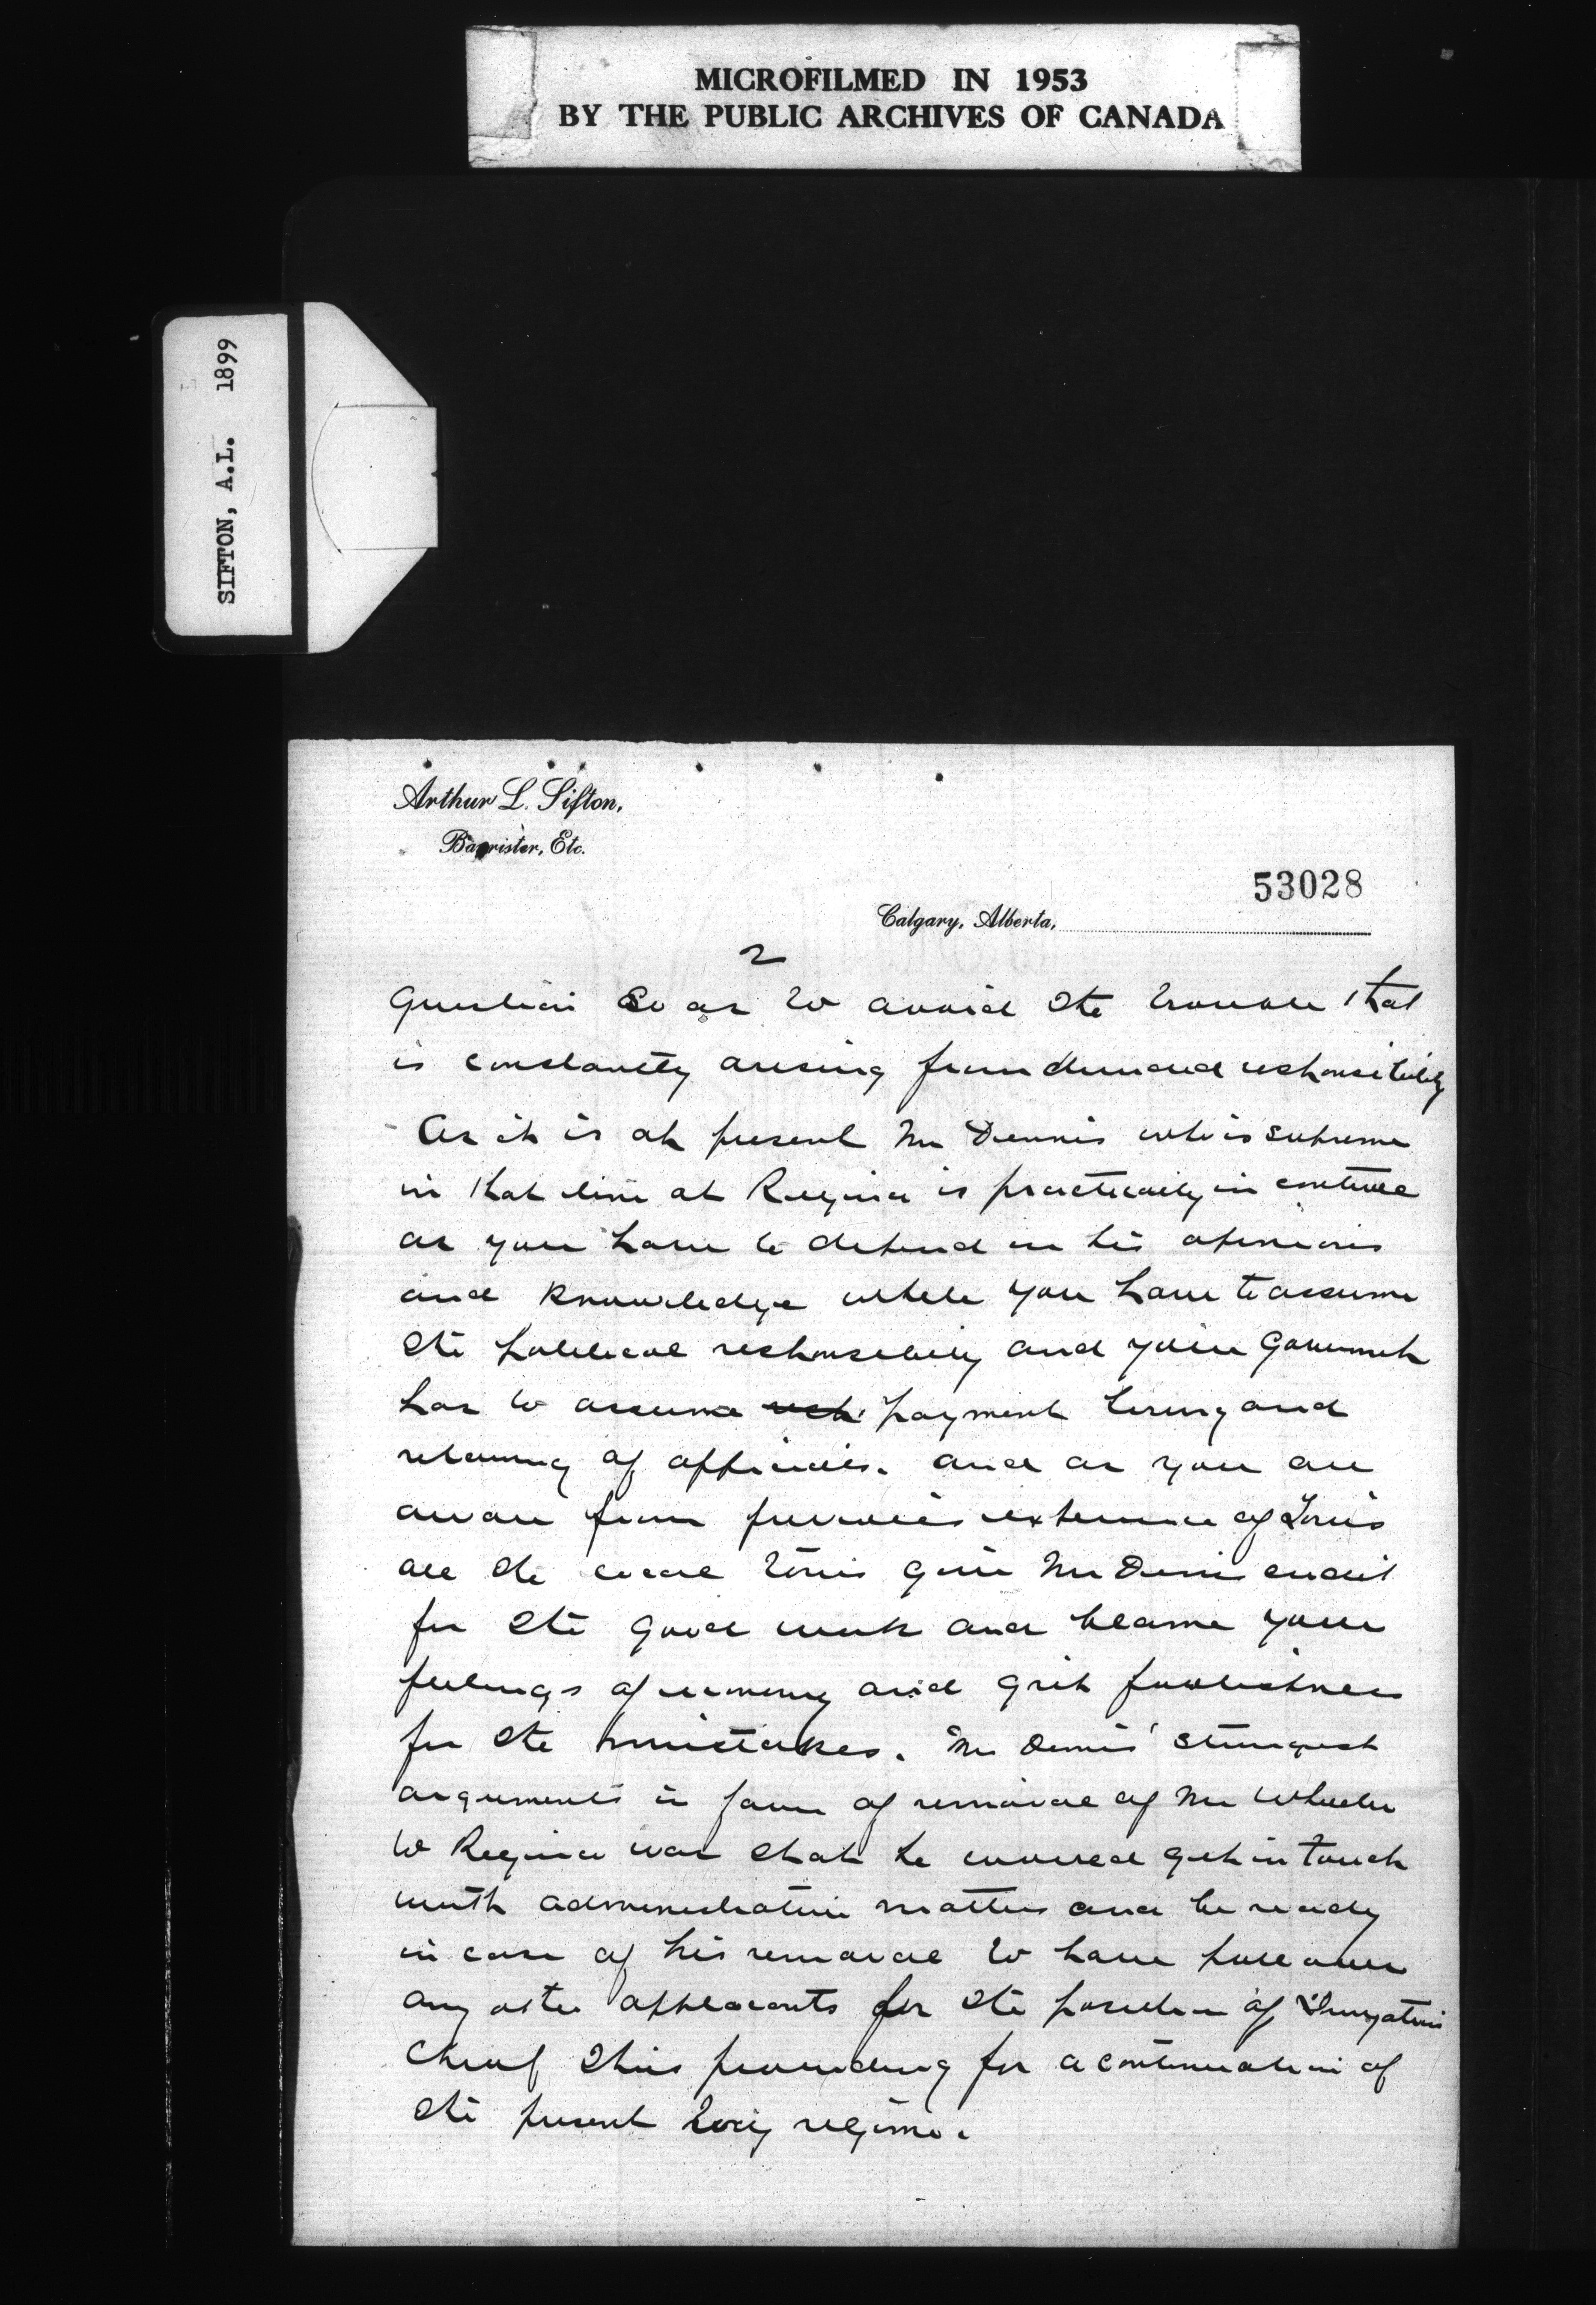 MICROFILMED IN 1953
BY THE PUBLIC ARCHIVES OF CANADA
SIFTON, A.L. 1899
Arthur L. Sifton,
Barrister, Etc.
53028
Calgary, Alberta,
2
question so as to avoid the trouble that
is constantly arising from divided responsibility
As it is at present Mr Dennis who is supreme
in that line at Regina is practically in control
as you have to depend on his opinions
and knowledge while you have to assume
the political responsibility and your Government
has to assume payment hiring and
retaining of officials. and as you are
aware from previous experience of Tories
all the local Tories give Mr Dennis credit
for the good work and blame your
feelings of economy and grit foolishness
for the mistakes. Mr Dennis' strongest
arguments in favor of removal of Mr Wheeler
to Regina was that he would get in touch
with administrative matters and be ready
in case of his removal to have pull over
any other applicants for the position of Irrigation
Chief thus providing for a continuation of
the present Tory regime.